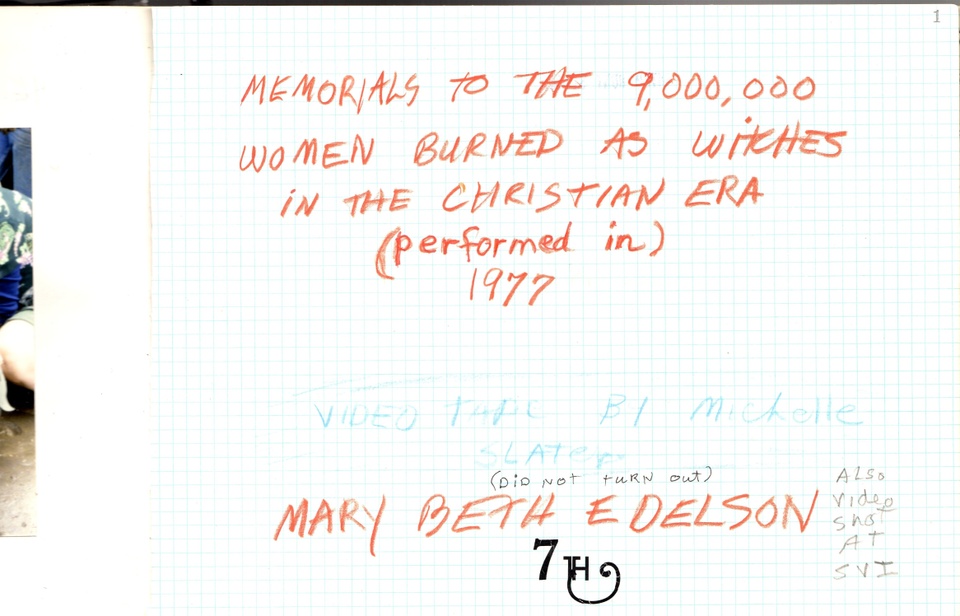 1
MEMORIALS TO THE 9,000,000
WOMEN BURNED AS WITCHES
IN THE CHRISTIAN ERA
(performed in)
1977
VIDEO TAPE BY Michelle
SLATER
(DID NOT TURN OUT)
MARY BETH EDELSON
7TH
ALSO
Video
SHOT
AT
SVI